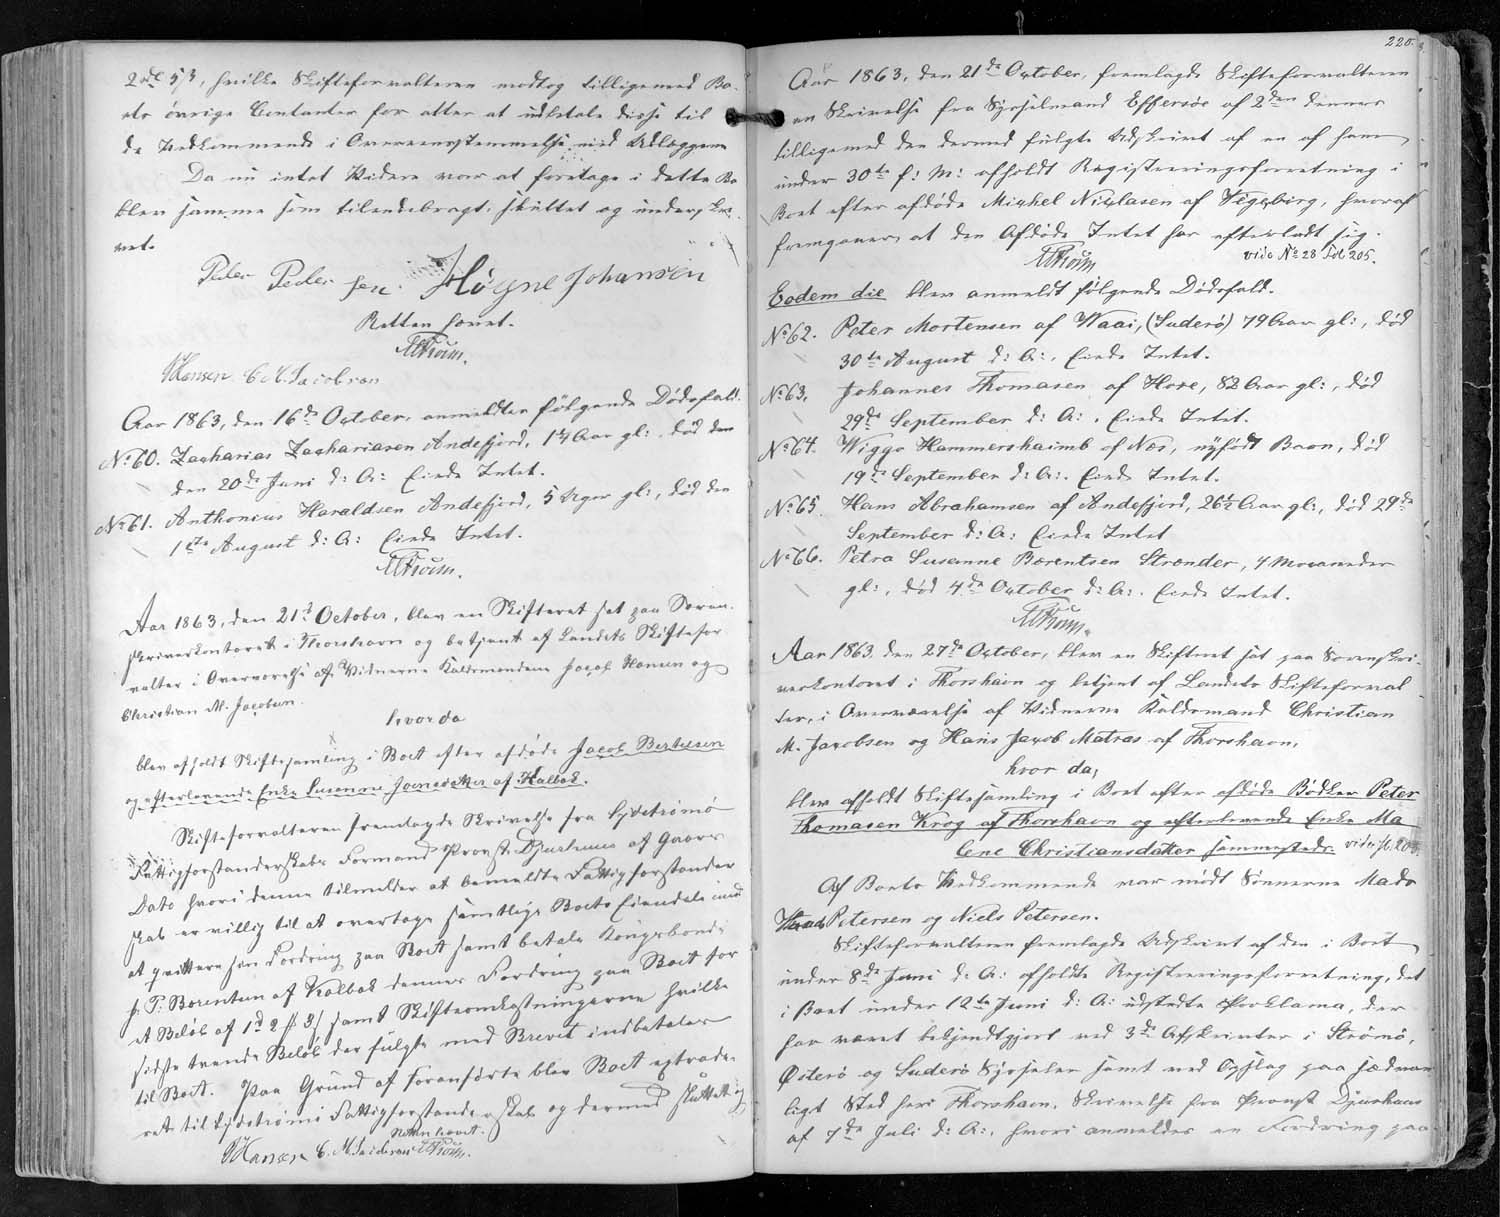 2rdl 53, hvilke Skifteforvalteren modtog tilligemed Bo-
ets øvrige Contanter for atter at udbetale disse til
de Vedkommende i Overeensstemmelse med Udlæggene
Da nu intet Videre var at foretage i dette Bo
blev samme som tilendebragt, sluttet og underskre-
vet.
Peder Pedersen. Høgne Johansen
Retten hævet.
HTrøim.
JHansen C. M. Jacobsen
Aar 1863, den 16de October, anmeldtes følgende Dødsfald.
No 60. Zacharias Zachariasen Andefjord, Aar gl:, død den
den 20de Juni d: A: Eiede Intet.
No 61. Anthonius Haraldsen Andefjord, 5 Uger gl:, død den
1ste August d: A: Eiede Intet.
HTrøim.
Aar 1863, den 21de October, blev en Skifteret sat paa Soren-
skriverkontoret i Thorshavn og betjent af Landets Skiftefor-
valter i Overværelse af Vidnerne Kaldsmændene Jacob Hansen og
Christian M. Jacobsen.
hvorda
blev afholdt Skiftesamling i Boet efter afdøde Jacob Bertelsen
og efterlevende Enke Susanne Joensdatter af Kalbak.
Skifteforvalteren fremlagde Skrivelse fra Sydstrømø
Fattigforstanderskabs Formand Provst Djurhuus af Gaars
Dato hvori denne tilmelder at bemeldte Fattigforstander
skab er villig til at overtage samtlige Boets Eiendele imod
at qvittere sin Fordring paa Boet samt betale Kongsbonde
J. P. Børentsen af Kalbak dennes Fordring paa Boet for
et Beløb af 1rd 2 ℔ 3ſ samt Skifteomkostningerne hvilke
sidste tvende Beløb der fulgte med Brevet indbetales
til Boet. Paa Grund af Foranførte blev Boet extrade-
ret til Sydstrømø Fattigforstanderskab og dermed sluttet og
Retten hævet.
JHansen C. M. Jacobsen HTrøim.
220.
Aar 1863, den 21de October, fremlagde Skifteforvalteren
en Skrivelse fra Sysselmand Effersøe af 2den dennes
tilligemed den dermed fulgte Udskrivt af en af ham
under 30te f: M: afholdt Registreringsforretning i
Boet efter afdøde Michel Niclasen af Vigebirg, hvoraf
fremgaaer, at den Afdøde Intet har efterladt sig.
HTrøim vide No 28 Fol 205.
Eodem die blev anmeldt følgende Dødsfald.
No 62. Peter Mortensen af Waai, (Suderø) 79 Aar gl:, død
30te August d: A:, Eiede Intet.
No 63. Johannes Thomasen af Hove, 82 Aar gl:, død
29de September d: A:, Eiede Intet.
No 64. Wiggo Hammershaimb af Næs, nyfødt Barn, død
19de September d: A:. Eiede Intet.
No 65. Hans Abrahamsen af Andefjord, 26½ Aar gl:, død 29de
September d: A: Eiede Intet
No 66. Petra Susanne Bærentsen Strænder, 4 Maaneder
gl:, død 4de October d: A:. Eiede Intet.
HTrøim.
Aar 1863, den 27de October, blev en Skifteret sat paa Sorenskri-
verkontoret i Thorshavn og betjent af Landets Skifteforval-
ter, i Overværelse af Vidnerne Kaldsmand Christian
M. Jacobsen og Hans Jacob Matras af Thorshavn,
hvor da,
blev afholdt Skiftesamling i Boet efter afdøde Bødker Peter
Thomasen Krog af Thorshavn og efterlevende Enke Ma
lene Christiansdatter sammesteds. vide fol. 203.
Af Boets Vedkommende var mødt Sønnerne Mads
Petersen og Niels Petersen.
Skifteforvalteren fremlagde Udskrivt af den i Boet
under 8de Juni d: A: afholdte Registreringsforretning, det
i Boet under 12te Juni d: A: udstedte Proklama, der
har været bekjendtgjort ved 3de Afskrivter i Strømø,
Østerø og Suderø Sysseler samt ved Opslag paa sædvan
ligt Sted heri Thorshavn. Skrivelse fra Provst Djurhuus
af 7de Juli d: A:, hvori anmeldes en Fordring paa